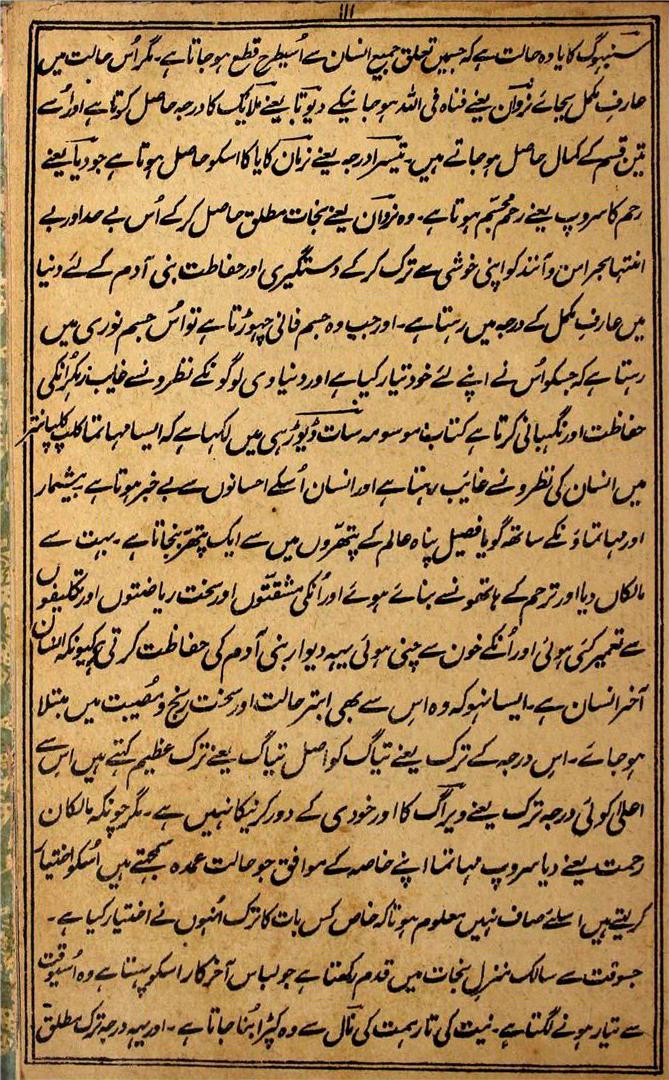 ۱۱۱
سنبہوگ کایا وہ حالت ہے کہ جسمیں تعلق جمیع انسان سے اُسیطرح قطع ہو جاتا ہے۔ مگر اُس حالت میں
عارف مکمل بجائے نروان یعنے فناہ فی اللہ ہو جانیکے دیوتا یعنے ملایک کا درجہ حاصل کرتا ہے اور اُسے
تین قسم کے کمال حاصل ہو جاتے ہیں۔ تیسرا درجہ یعنے نرمان کایا کا اسکو حاصل ہوتا ہے جو دیا یعنے
رحم کا سروپ یعنے رحم مجسّم ہوتا ہے۔ وہ نروان یعنے نجات مطلق حاصل کرکے اُس بے حد اور بے
انتہا بحر امن و آنند کو اپنی خوشی سے ترک کرکے دستگیری اور حفاظت بنی آدم کے لئے دنیا
میں عارف مکمل کے درجہ میں رہتا ہے۔ اور جب وہ جسم فانی چہوڑتا ہے تو اُس جسم نوری میں
رہتا ہے کہ جسکو اُس نے اپنے لئے خود تیار کیا ہے اور دنیاوی لوگونکے نظرونسے غایب رہکر اُنکی
حفاظت اور نگہبانی کرتا ہے کتاب موسومہ سات ڈیوڑہی میں لکہا ہے کہ ایسا مہاتما کلپ کلپانتر
میں انسان کی نظرونسے غایب رہتا ہے اور انسان اُسکے احسانوں سے بے خبر ہوتا ہے بیشمار
اور مہاتماؤنکے ساتھ گویا فصیل پناہ عالم کے پتھروں میں سے ایک پتھر بنجاتا ہے۔ بہت سے
مالکان دیا اور ترحم کے ہاتھونسے بنائے ہوئے اور اُنکی مشقتوں اور سخت ریاضتوں اور تکلیفوں
سے تعمیر کئی ہوئی اور اُنکے خون سے چنی ہوئی یہہ دیوار بنی آدم کی حفاظت کرتی ہے کیونکہ انسان
آخر انسان ہے۔ ایسا نہو کہ وہ اس سے بھی ابتر حالت اور سخت رنج و مصیبت میں مبتلا
ہو جائے۔ اس درجہ کے ترک یعنے تیاگ کو اصل تیاگ یعنے ترک عظیم کہتے ہیں اس سے
اعلیٰ کوئی درجہ ترک یعنے ویراگ کا اور خودی کے دور کرنیکا نہیں ہے۔ مگر چونکہ مالکان
رحمت یعنے دیا سروپ مہاتما اپنے خاصہ کے موافق جو حالت عمدہ سمجھتے ہیں اُسکو اختیار
کر لیتے ہیں اسلئے صاف نہیں معلوم ہوتا کہ خاص کس بات کا ترک اُنہوں نے اختیار کیا ہے۔
جسوقت سے سالک منزل نجات میں قدم رکھتا ہے جو لباس آخرکار اسکو پہننا ہے وہ اُسیوقت
سے تیار ہونے لگتا ہے۔ نیت کی تار ہمت کی نال سے وہ کپڑا بُنا جاتا ہے۔ اور یہہ درجہ ترک مطلق